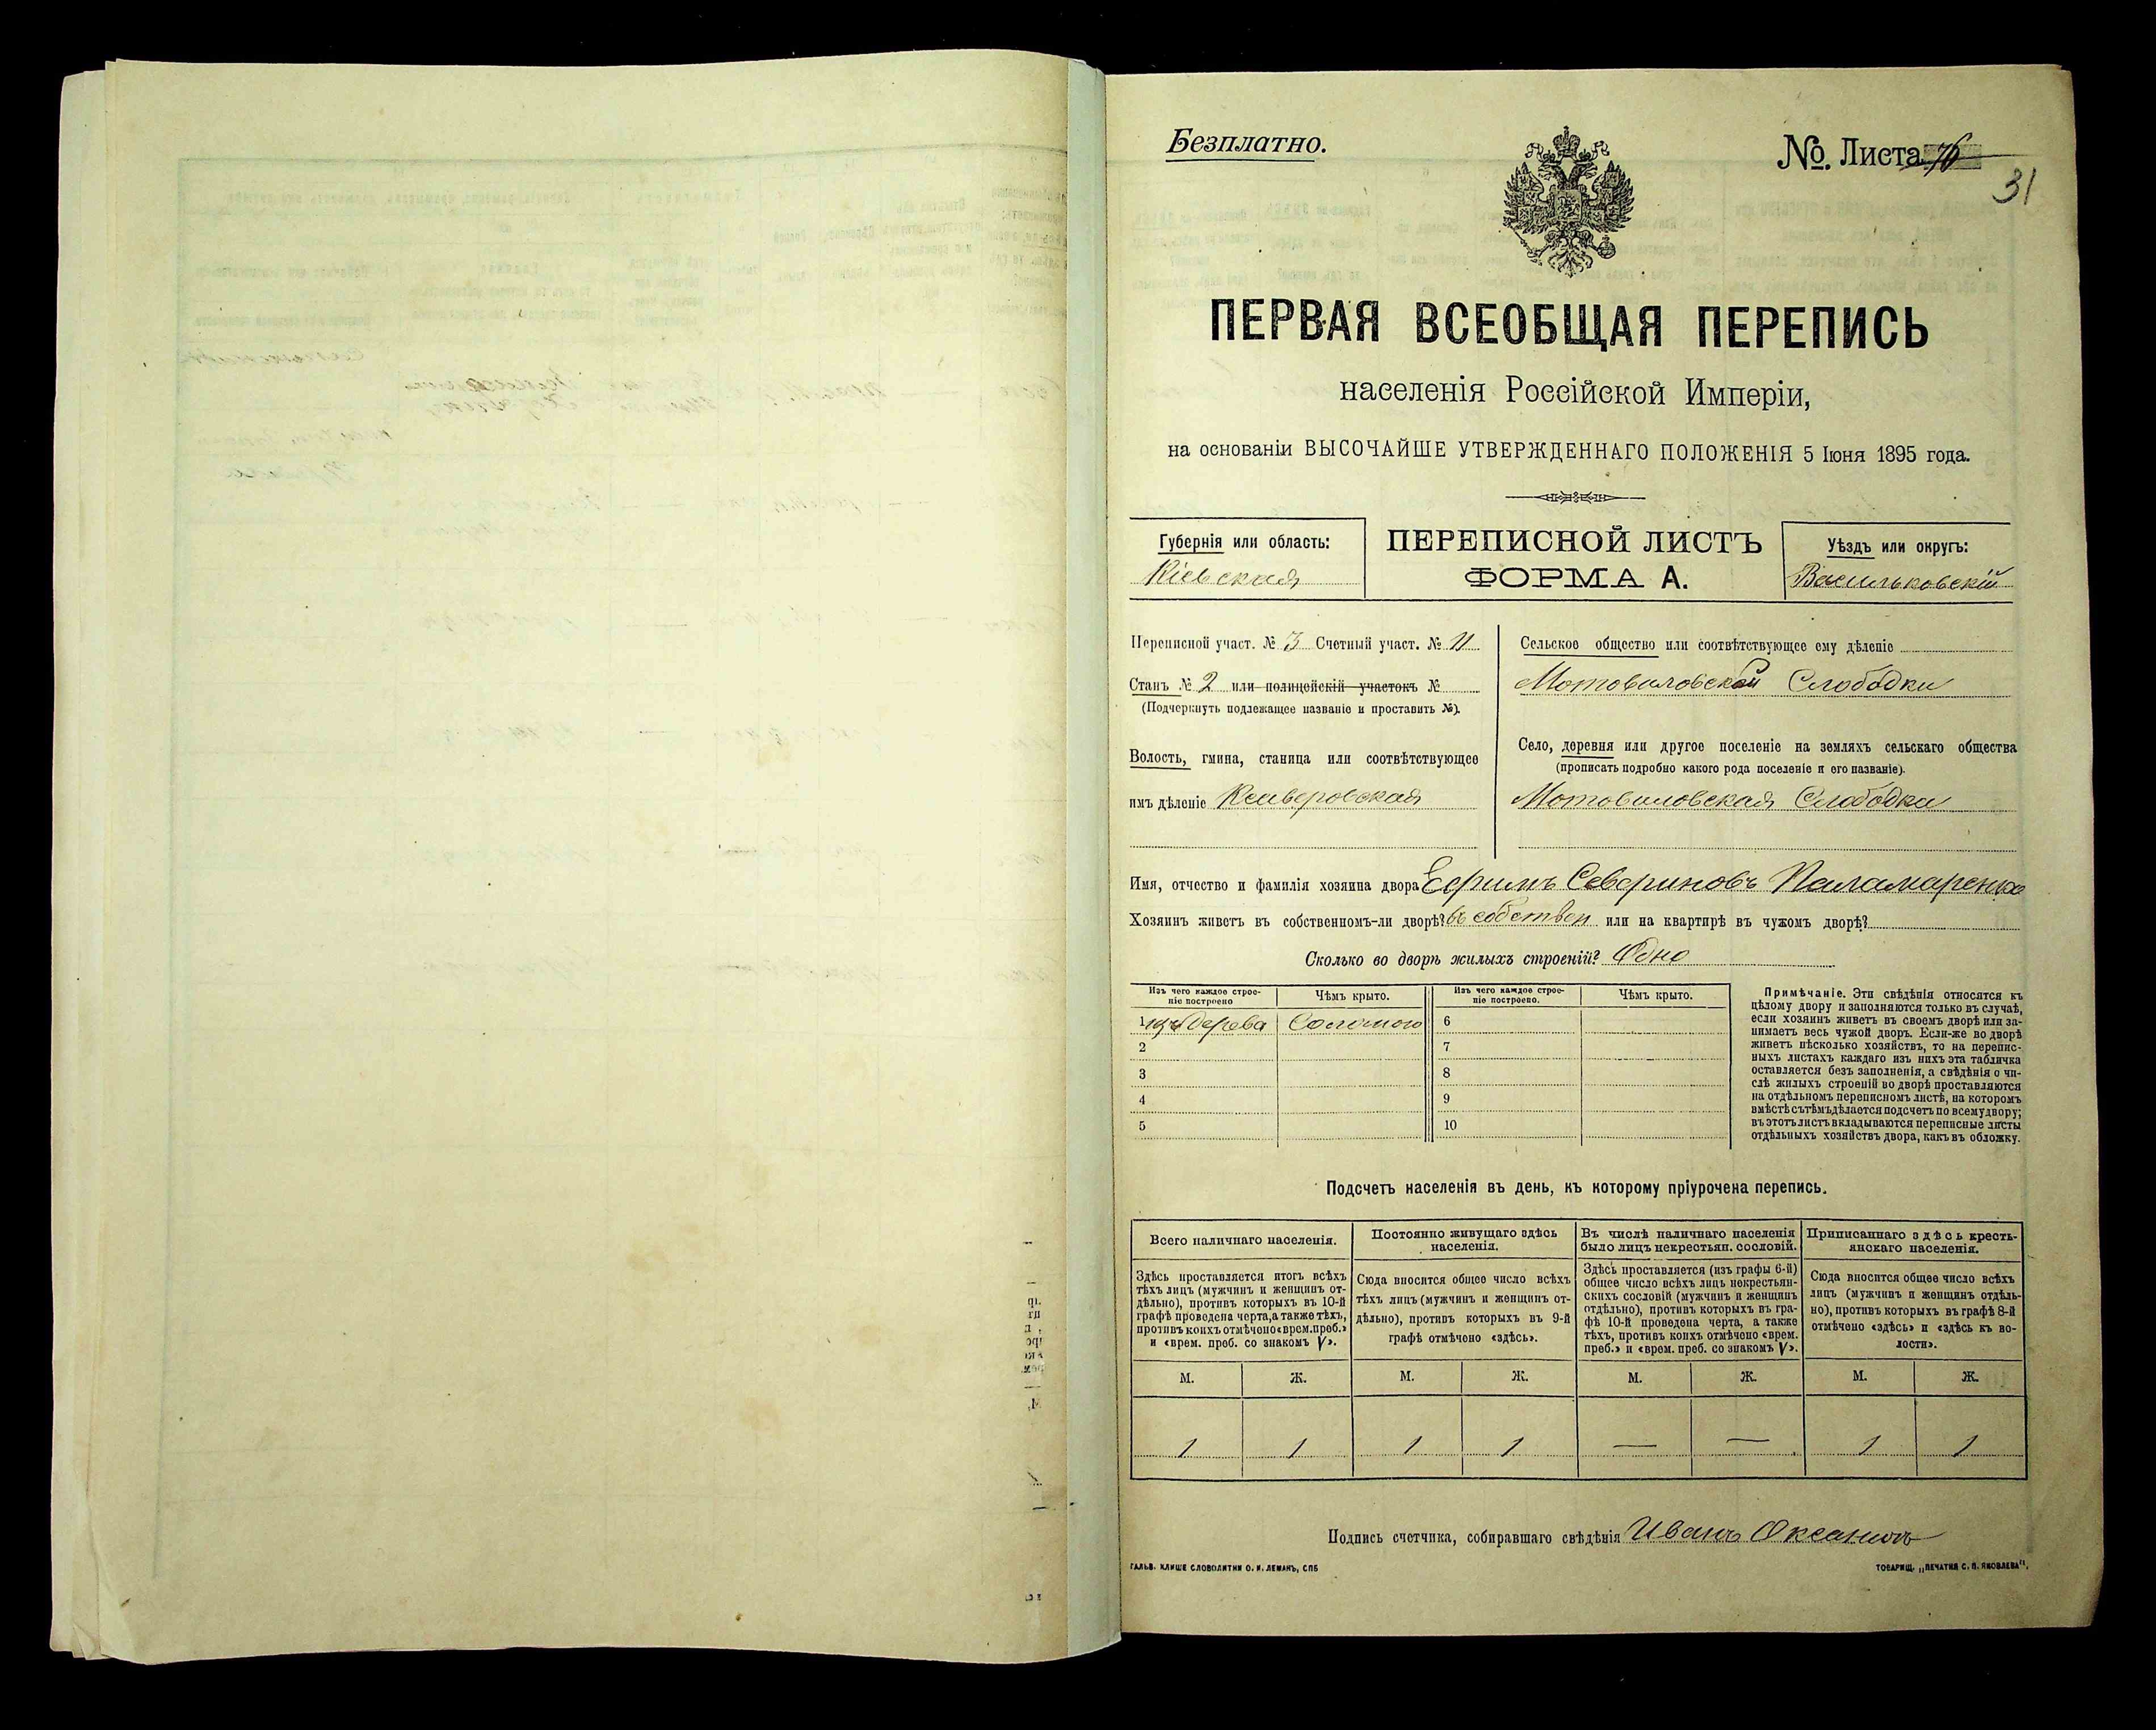 Безплатно.
№. Листа 76
31
ПЕРВАЯ ВСЕОБЩАЯ ПЕРЕПИСЬ
населенія Россійской Имперіи,
на основаніи ВЫСОЧАЙШЕ УТВЕРЖДЕННАГО ПОЛОЖЕНІЯ 5 Іюня 1895 года.
Губернія или область:
Кіевская
ПЕРЕПИСНОЙ ЛИСТЪ
ФОРМА А.
Уѣздъ или округъ:
Васильковскій
Переписной участ. № 3 Счетный участ. № 11
Станъ № 2 или полицейскій участокъ №
(Подчеркнуть подлежащее названіе и проставить №).
Волость, гмина, станица или соотвѣтствующее
имъ дѣленіе Ксаверовская
Сельское общество или соотвѣтствующее ему дѣленіе
Мотовиловской Слободки
Село, деревня или другое поселеніе на земляхъ сельскаго общества
(прописать подробно какого рода поселеніе и его названіе).
Мотовиловская Слободка
Имя, отчество и фамилія хозяина двора Ефимъ Севериновъ Паламаренко
Хозяинъ живетъ въ собственномъ-ли дворѣ? въ собствен или на квартирѣ въ чужомъ дворѣ?
Сколько во дворѣ жилыхъ строеній? Одно
Изъ чего каждое строе-
ніе построено
Чѣмъ крыто.
Изъ чего каждое строе-
ніе построено.
Чѣмъ крыто.
1 изъ дерева Соломою 6
2 7
3 8
4 9
5 10
Примѣчаніе. Эти свѣдѣнія относятся къ
цѣлому двору и заполняются только въ случаѣ,
если хозяинъ живетъ въ своемъ дворѣ или за-
нимаетъ весь чужой дворъ. Если-же во дворѣ
живетъ нѣсколько хозяйствъ, то на перепис-
ныхъ листахъ каждаго изъ нихъ эта табличка
оставляется безъ заполненія, а свѣдѣнія о чи-
слѣ жилыхъ строеній во дворѣ проставляются
на отдѣльномъ переписномъ листѣ, на которомъ
вмѣстѣ съ тѣмъ дѣлается подсчетъ по всему двору;
въ этотъ листъ вкладываются переписные листы
отдѣльныхъ хозяйствъ двора, какъ въ обложку.
Подсчетъ населенія въ день, къ которому пріурочена перепись.
Всего наличнаго населенія.
Здѣсь проставляется итогъ всѣхъ
тѣхъ лицъ (мужчинъ и женщинъ от-
дѣльно), противъ которыхъ въ 10-й
графѣ проведена черта, а также тѣхъ,
противъ коихъ отмѣчено «врем. преб.»
и «врем. преб. со знакомъ V».
Постоянно живущаго здѣсь
населенія.
Сюда вносится общее число всѣхъ
тѣхъ лицъ (мужчинъ и женщинъ от-
дѣльно), противъ которыхъ въ 9-й
графѣ отмѣчено «здѣсь».
Въ числѣ наличнаго населенія
было лицъ некрестьян. сословій.
Здѣсь проставляется (изъ графы 6-й)
общее число всѣхъ лицъ некрестьян-
скихъ сословій (мужчинъ и женщинъ
отдѣльно), противъ которыхъ въ гра-
фѣ 10-й проведена черта, а также
тѣхъ, противъ коихъ отмѣчено «врем.
преб.» и «врем. преб. со знакомъ V».
Приписаннаго здѣсь кресть-
янскаго населенія.
Сюда вносится общее число всѣхъ
лицъ (мужчинъ и женщинъ отдѣль-
но), противъ которыхъ въ графѣ 8-й
отмѣчено «здѣсь» и «здѣсь къ во-
лости».
М. Ж. М. Ж. М. Ж. М. Ж.
1 1 1 1 — — 1 1
Подпись счетчика, собиравшаго свѣдѣнія Иванъ
ГАЛЬВ. КЛИШЕ СЛОВОЛИТНИ О. И. ЛЕМАНЪ, СПБ
ТОВАРИЩ. „ПЕЧАТНЯ С. П. ЯКОВЛЕВА".